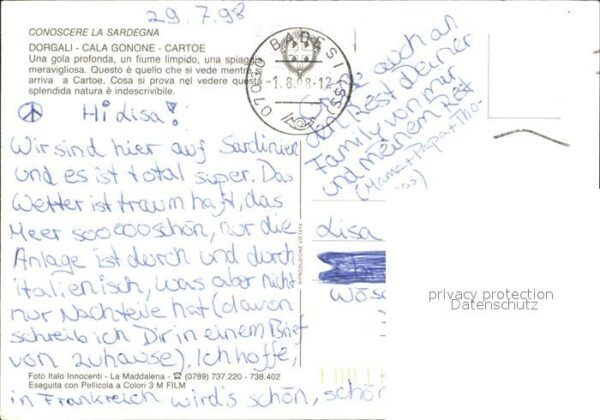 29.7.98
CONOSCERE LA SARDEGNA
DORGALI - CALA GONONE - CARTOE
Una gola profonda, un fiume limpido, una spiaggia
meravigliosa. Questo è quello che si vede mentre
arriva a Cartoe. Cosa si prova nel vedere questa
splendida natura è indescrivibile.
07030 BADESI (SS)
-1.8.98-12
Hi Lisa!
Wir sind hier auf Sardinien
und es ist total super. Das
Wetter ist traumhaft, das
Meer sooooo schön, nur die
Anlage ist durch und durch
italienisch, was aber nicht
nur Nachteile hat (davon
schreib ich Dir in einem Brief
von zuhause). Ich hoffe,
in Frankreich wird's schön, schön
auch an
den Rest Deiner
Family von mir
und meinem Rest
(Mama+Papa+Tho-
mas)
Lisa
RIPRODUZIONE VIETATA
privacy protection
Datenschutz
Foto Italo Innocenti - La Maddalena - ☎ (0789) 737.220 - 738.402
Eseguita con Pellicola a Colori 3 M FILM